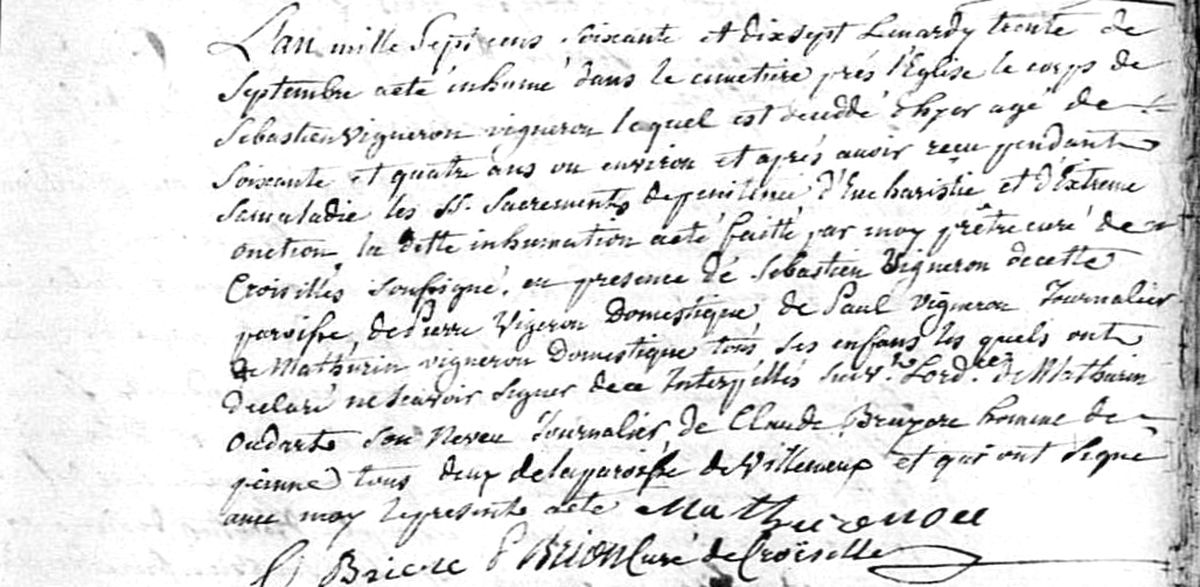 L'an mille Sept cens Soixante et dixsept Lemardy trente de
Septembre aeté inhumé dans le cimetiere prés l'Eglise le corps de
Sebastien Vigneron vigneron lequel est decedé hyer agé de
Soixante et quatre ans ou environ et aprés avoir reçu pendant
Samaladie les SS. Sacrements depenitence d'Eucharistie et d'Extreme
onction, la ditte inhumation aeté faitte par moy prêtre curé de
Croisilles Soussigné, en presence de Sebastien Vigneron decette
paroisse, de Pierre Vigeron Domestique de Paul vigneron Journalier
de Mathurin vigneron Domestique tous ses enfans les quels ont
declaré nesçavoir signer dece Interpellés suiv.t Lord.ce de Mathurin
oudart Son Neveu Journalier, de Claude Bruyere homme de
peinne tous deux delaparoisse de Villemeux et qui ont Signé
avec moy lepresent acte Mathu
C Briere Brion Curé de Croiselle